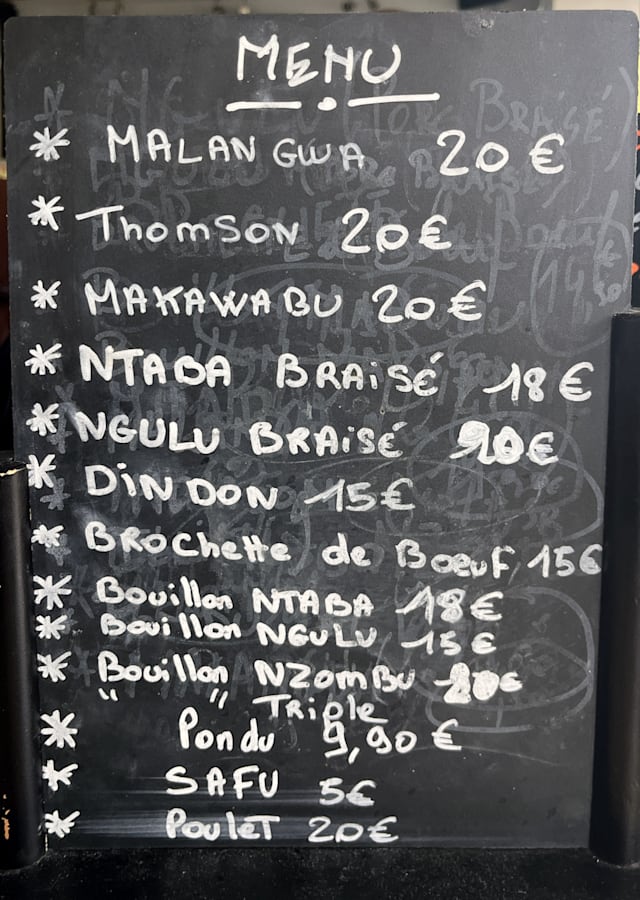 MENU
* MALANGWA 20 €
* Thomson 20 €
* MAKAWABU 20 €
* NTABA BRAiSÉ 18 €
* NGULU BRAiSÉ 20 €
* DiNDON 15 €
* BROCHette de BoeuF 15€
* Bouillon NTABA 18 €
* Bouillon NGULU 15 €
* Bouillon NZomBu 20€
" " TRiple
* Pondu 9,90 €
* SAFU 5€
* PouleT 20€